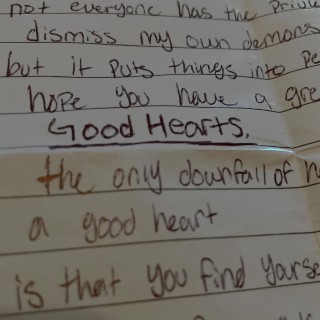 not everyone has the
dismiss my own demons
but it puts things into
hope you have a
Good Hearts.
the only downfall of
a good heart
is that you find